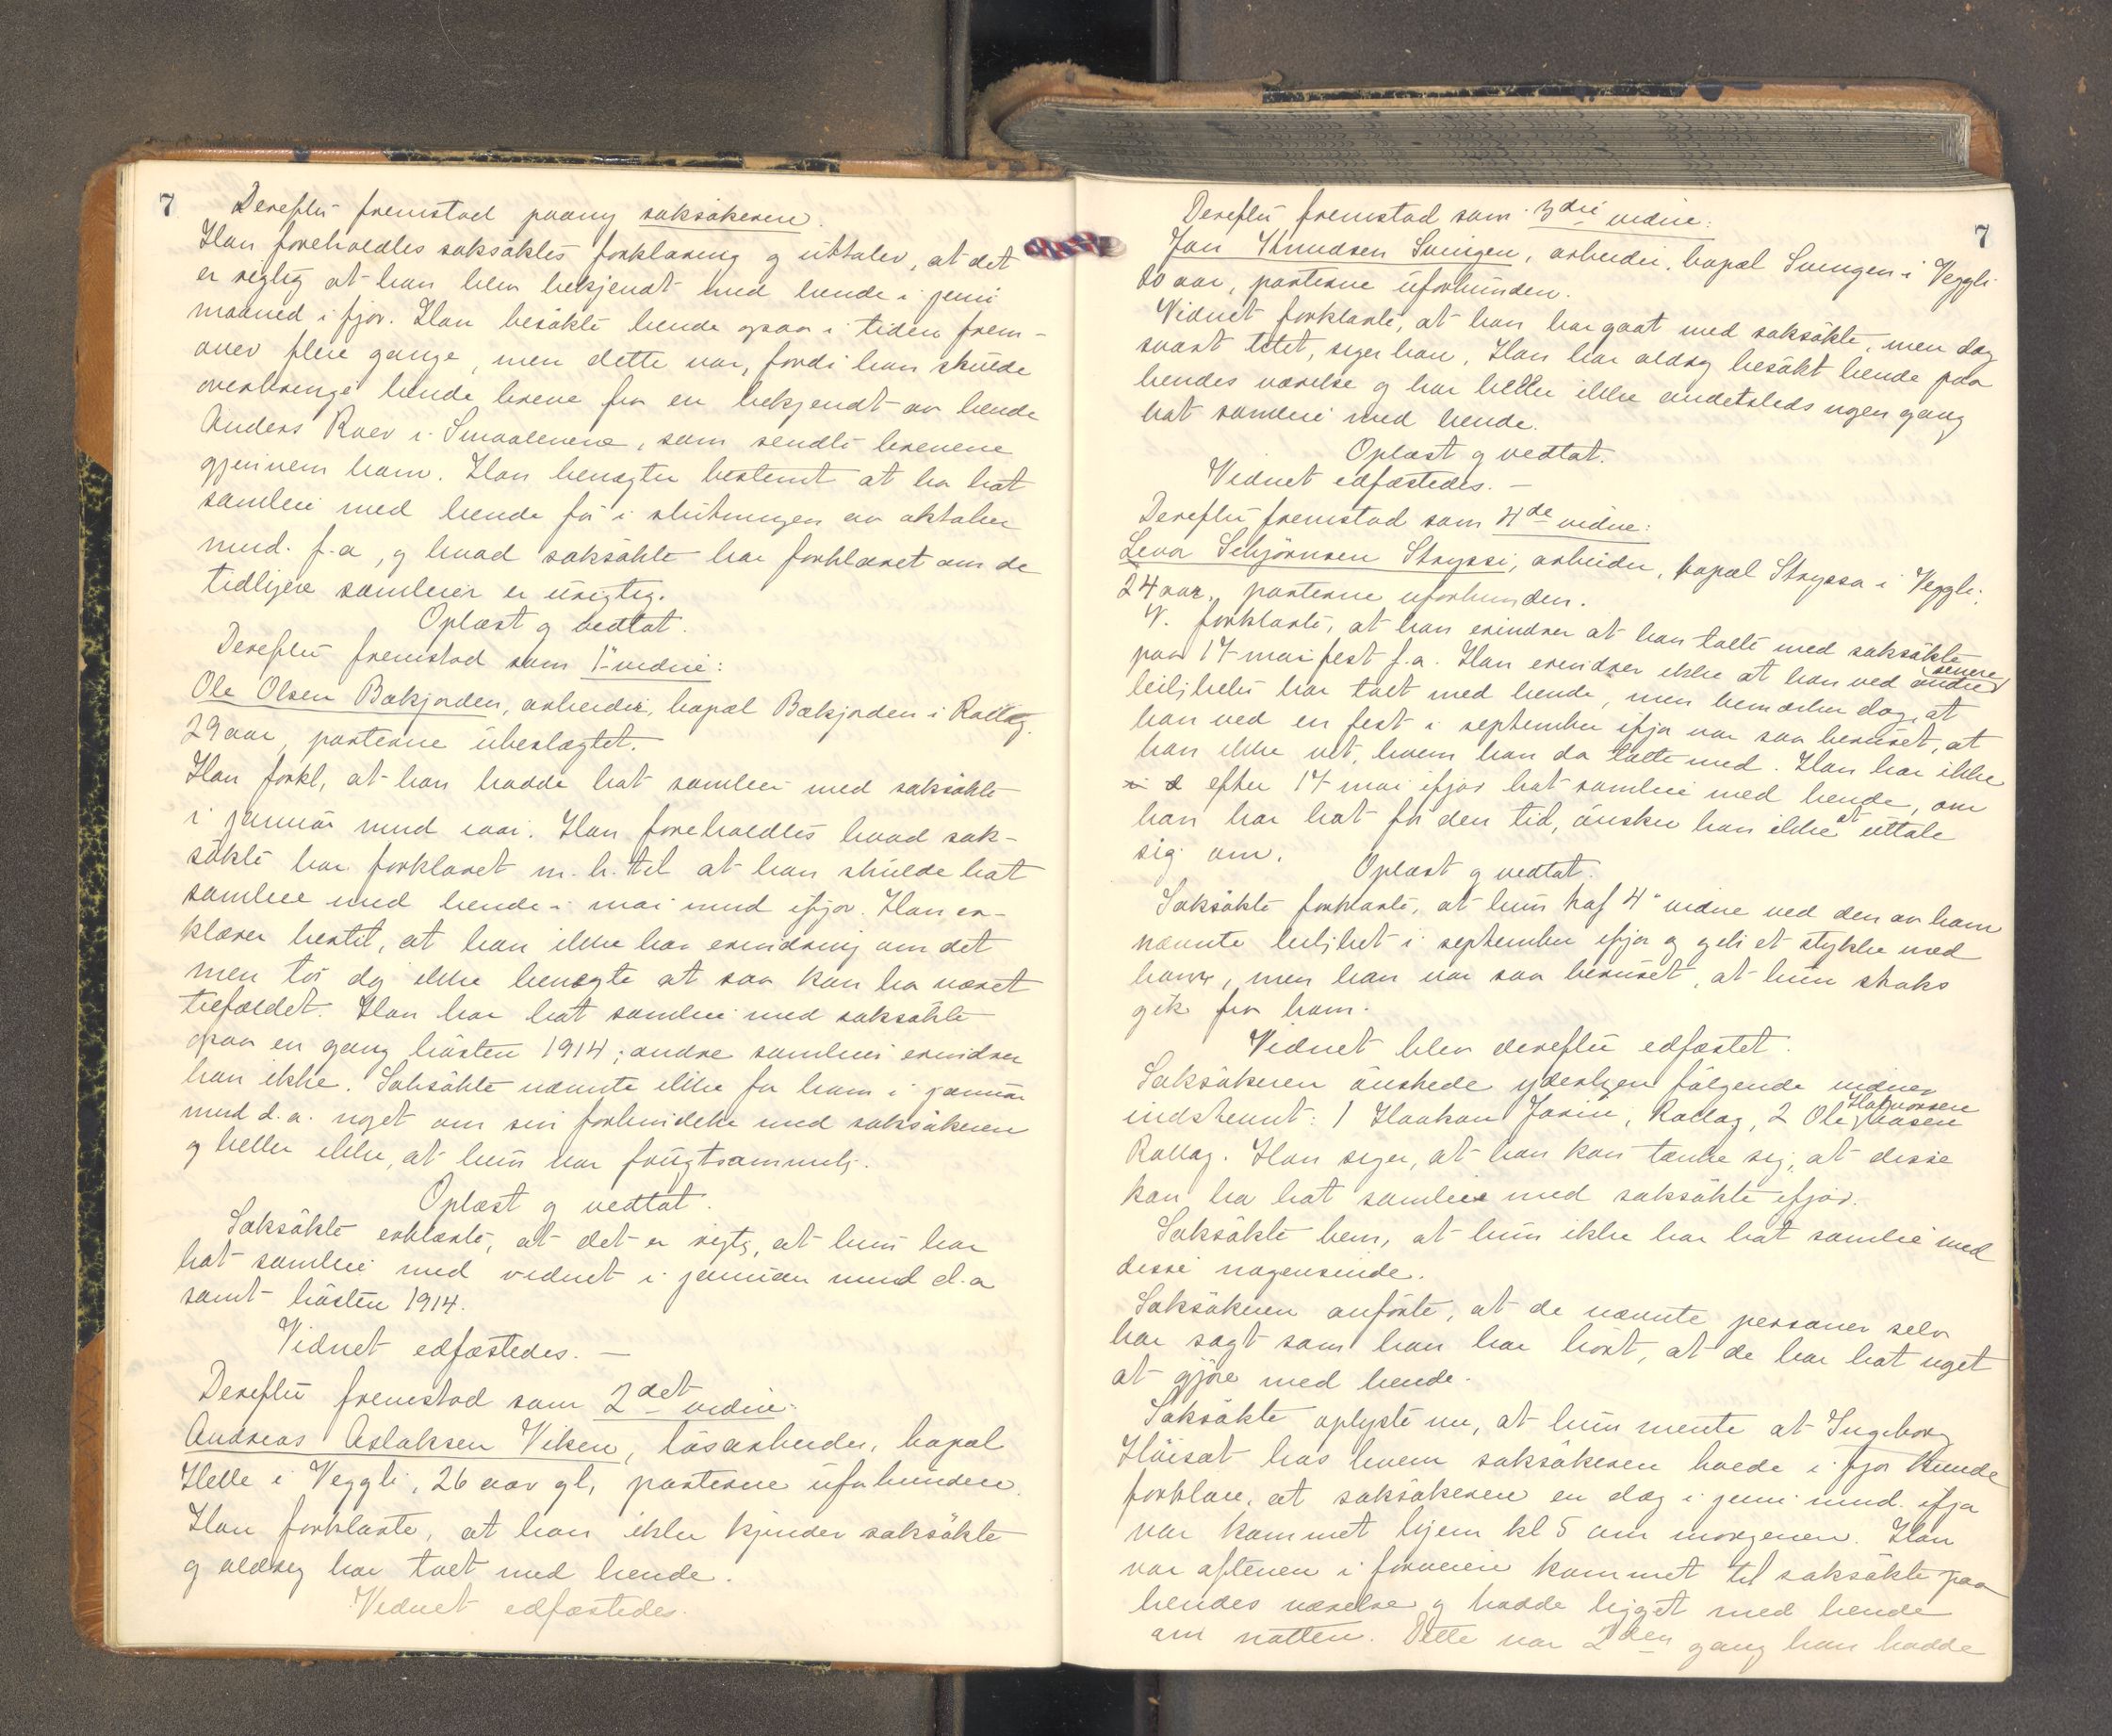 7
Derefter fremstod paany saksökeren.
Han foreholdtes saksöktes forklaring og uttaler, at det
er rigtig at han blev bekjendt med hende i juni
maaned i fjor. Han besökte hende ogsaa i tiden frem-
over flere gange, men dette var, fordi han skulde
overbringe hende breve fra en bekjendt av hende
Anders Roer i Smaalenene, som sendte brevene
gjennem ham. Han benegter bestemt at ha hat
samleie med hende för i slutningen av oktober
mnd. f.a, og hvad saksökte har forklaret om de
tidligere samleier er urigtig.
Oplæst og vedtat.
Derefter fremstod som 1ste vidne:
Ole Olsen Bakjorden, arbeider, bopæl Bakjorden i Rollag.
29 aar, parterne ubeslegtet.
Han forkl, at han hadde hat samleie med saksökte
i januar mnd iaar. Han foreholdtes hvad sak-
sökte har forklaret m.h. til at han skulde hat
samleie med hende i mai mnd ifjor. Han er-
klærer hertil, at han ikke har erindring om det
men tör dog ikke benegte at saa kan ha været
tilfældet. Han har hat samleie med saksökte
ogsaa en gang hösten 1914; andre samleier erindrer
han ikke. Saksökte nævnte ikke for ham i januar
mnd d.a. noget om sin forbindelse med saksökeren
og heller ikke, at hun var frugtsommelig.
Oplæst og vedtat.
Saksökte erklærte, at det er rigtig, at hun har
hat samleie med vidnet i januar mnd d.a
samt hösten 1914.
Vidnet edfæstedes. —
Derefter fremstod som 2det vidne:
Andreas Aslaksen Viken, lösarbeider, bopæl
Helle i Veggli, 26 aar gl, parterne uforbunden.
Han forklarte, at han ikke kjender saksökte
og aldrig har talt med hende.
Vidnet edfæstedes.
7
Derefter fremstod som 3die vidne:
Jon Knudsen Svingen, arbeider, bopæl Svingen i Veggli.
20 aar, parterne uforbunden.
Vidnet forklarte, at han har gaat med saksökte, men dog
svært litet, siger han. Han har aldrig besökt hende paa
hendes værelse og har heller ikke andetsteds nogen gang
hat samleie med hende.
Oplæst og vedtat.
Vidnet edfæstedes. —
Derefter fremstod som 4de vidne:
Levor Schjörnsen Stryssi, arbeider, bopæl Stryssa i Veggli.
24 aar, parterne uforbunden.
V. forklarte, at han erindrer at han talte med saksökte
paa 17 mai fest f.a. Han erindrer ikke at han ved andre senere
leiligheter har talt med hende, men bemærker dog, at
han ved en fest i september ifjor var saa beruset, at
han ikke vet, hvem han da talte med. Han har ikke
efter 17 mai ifjor hat samleie med hende, om
han har hat för den tid, önsker han ikke at uttale
sig om.
Oplæst og vedtat.
Saksökte forklarte, at hun traf 4de vidne ved den av ham
nævnte leilighet i september ifjor og gik et stykke med
ham, men han var saa beruset, at hun straks
gik fra ham.
Vidnet blev derefter edfæstet.
Saksökeren önskede yderligere fölgende vidner
indstevnt: 1 Haakon Jorin, Rollag, 2 Ole Halvorsen
Rollag. Han siger, at han kan tænke sig, at disse
kan ha hat samleie med saksökte ifjor.
Saksökte bem, at hun ikke har hat samleie med
disse nogensinde.
Saksökeren anförte, at de nævnte personer selv
har sagt som han har hört, at de har hat noget
at gjöre med hende.
Saksökte oplyste nu, at hun mente at Ingeborg
Höisæt hos hvem saksökeren boede i fjor kunde
forklare, at saksökeren en dag i juni mnd. ifjor
var kommet hjem kl 5 om morgenen. Han
var aftenen i forveien kommet til saksökte paa
hendes værelse og hadde ligget med hende
om natten. Dette var 2den gang han hadde